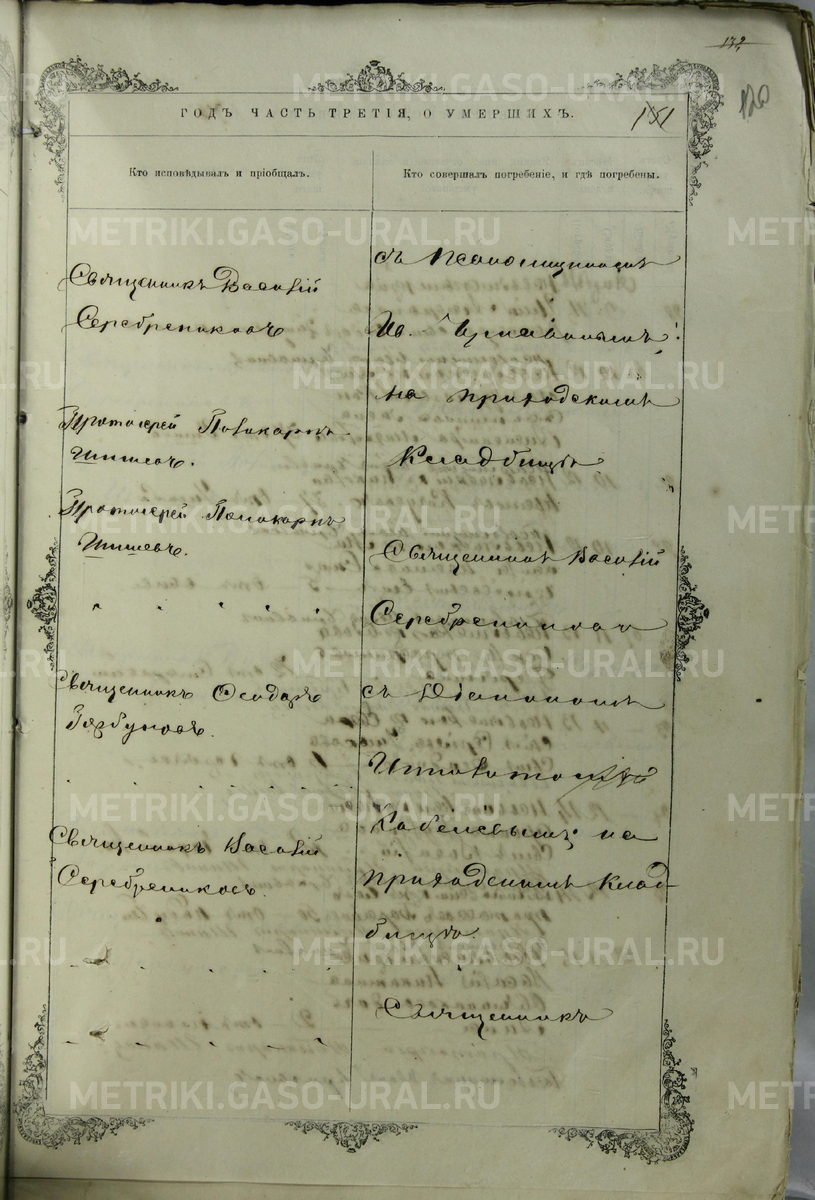 132
120
ГОДЪ ЧАСТЬ ТРЕТІЯ, О УМЕРШИХЪ.
151
Кто исповѣдывалъ и пріобщалъ.
Кто совершалъ погребеніе, и гдѣ погребены.
Священникъ Василій
Серебрениковъ
Протоіерей Поликарпъ
Шишевъ.
Протоіерей Поликарпъ
Шишевъ.
Священникъ Ѳеодоръ
Горбуновъ.
Священникъ Василій
Серебрениковъ.
съ Псаломщикомъ
Ио.
на приходскомъ
Кладбищѣ
Священникъ Василій
Серебрениковъ
съ Діакономъ
Ипполитомъ
Кобелевымъ; на
приходскомъ клад-
бищѣ
Священникъ
METRIKI.GASO-URAL.RU